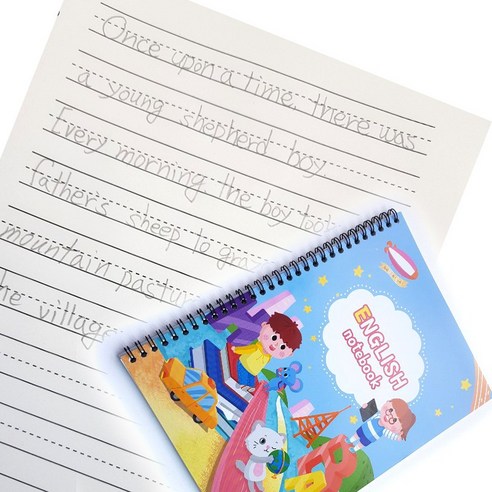 Once upon a time, there was
a young shepherd boy.
Every morning the boy took
father's sheep to
mountain
the village
ENGLISH
notebook